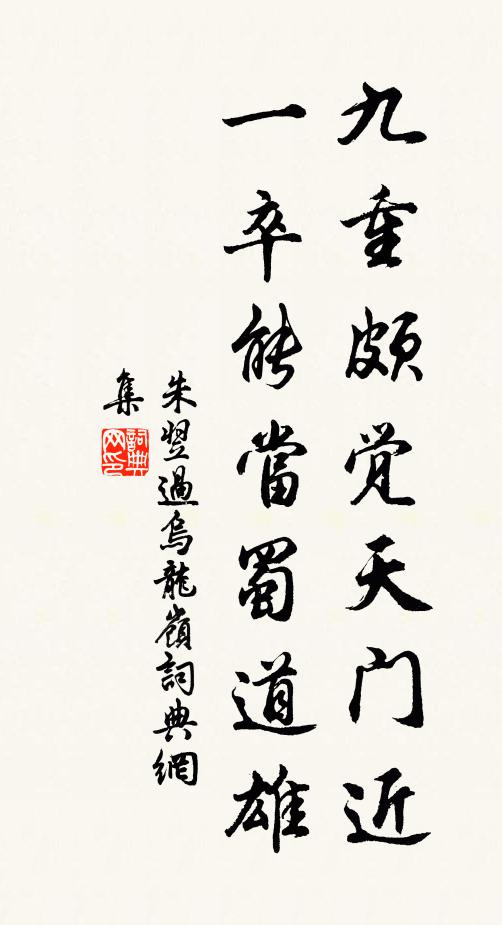 九重頗覚天门近
一卒能當蜀道雄
朱翌過烏龍嶺詞典網
集
詞典
网印